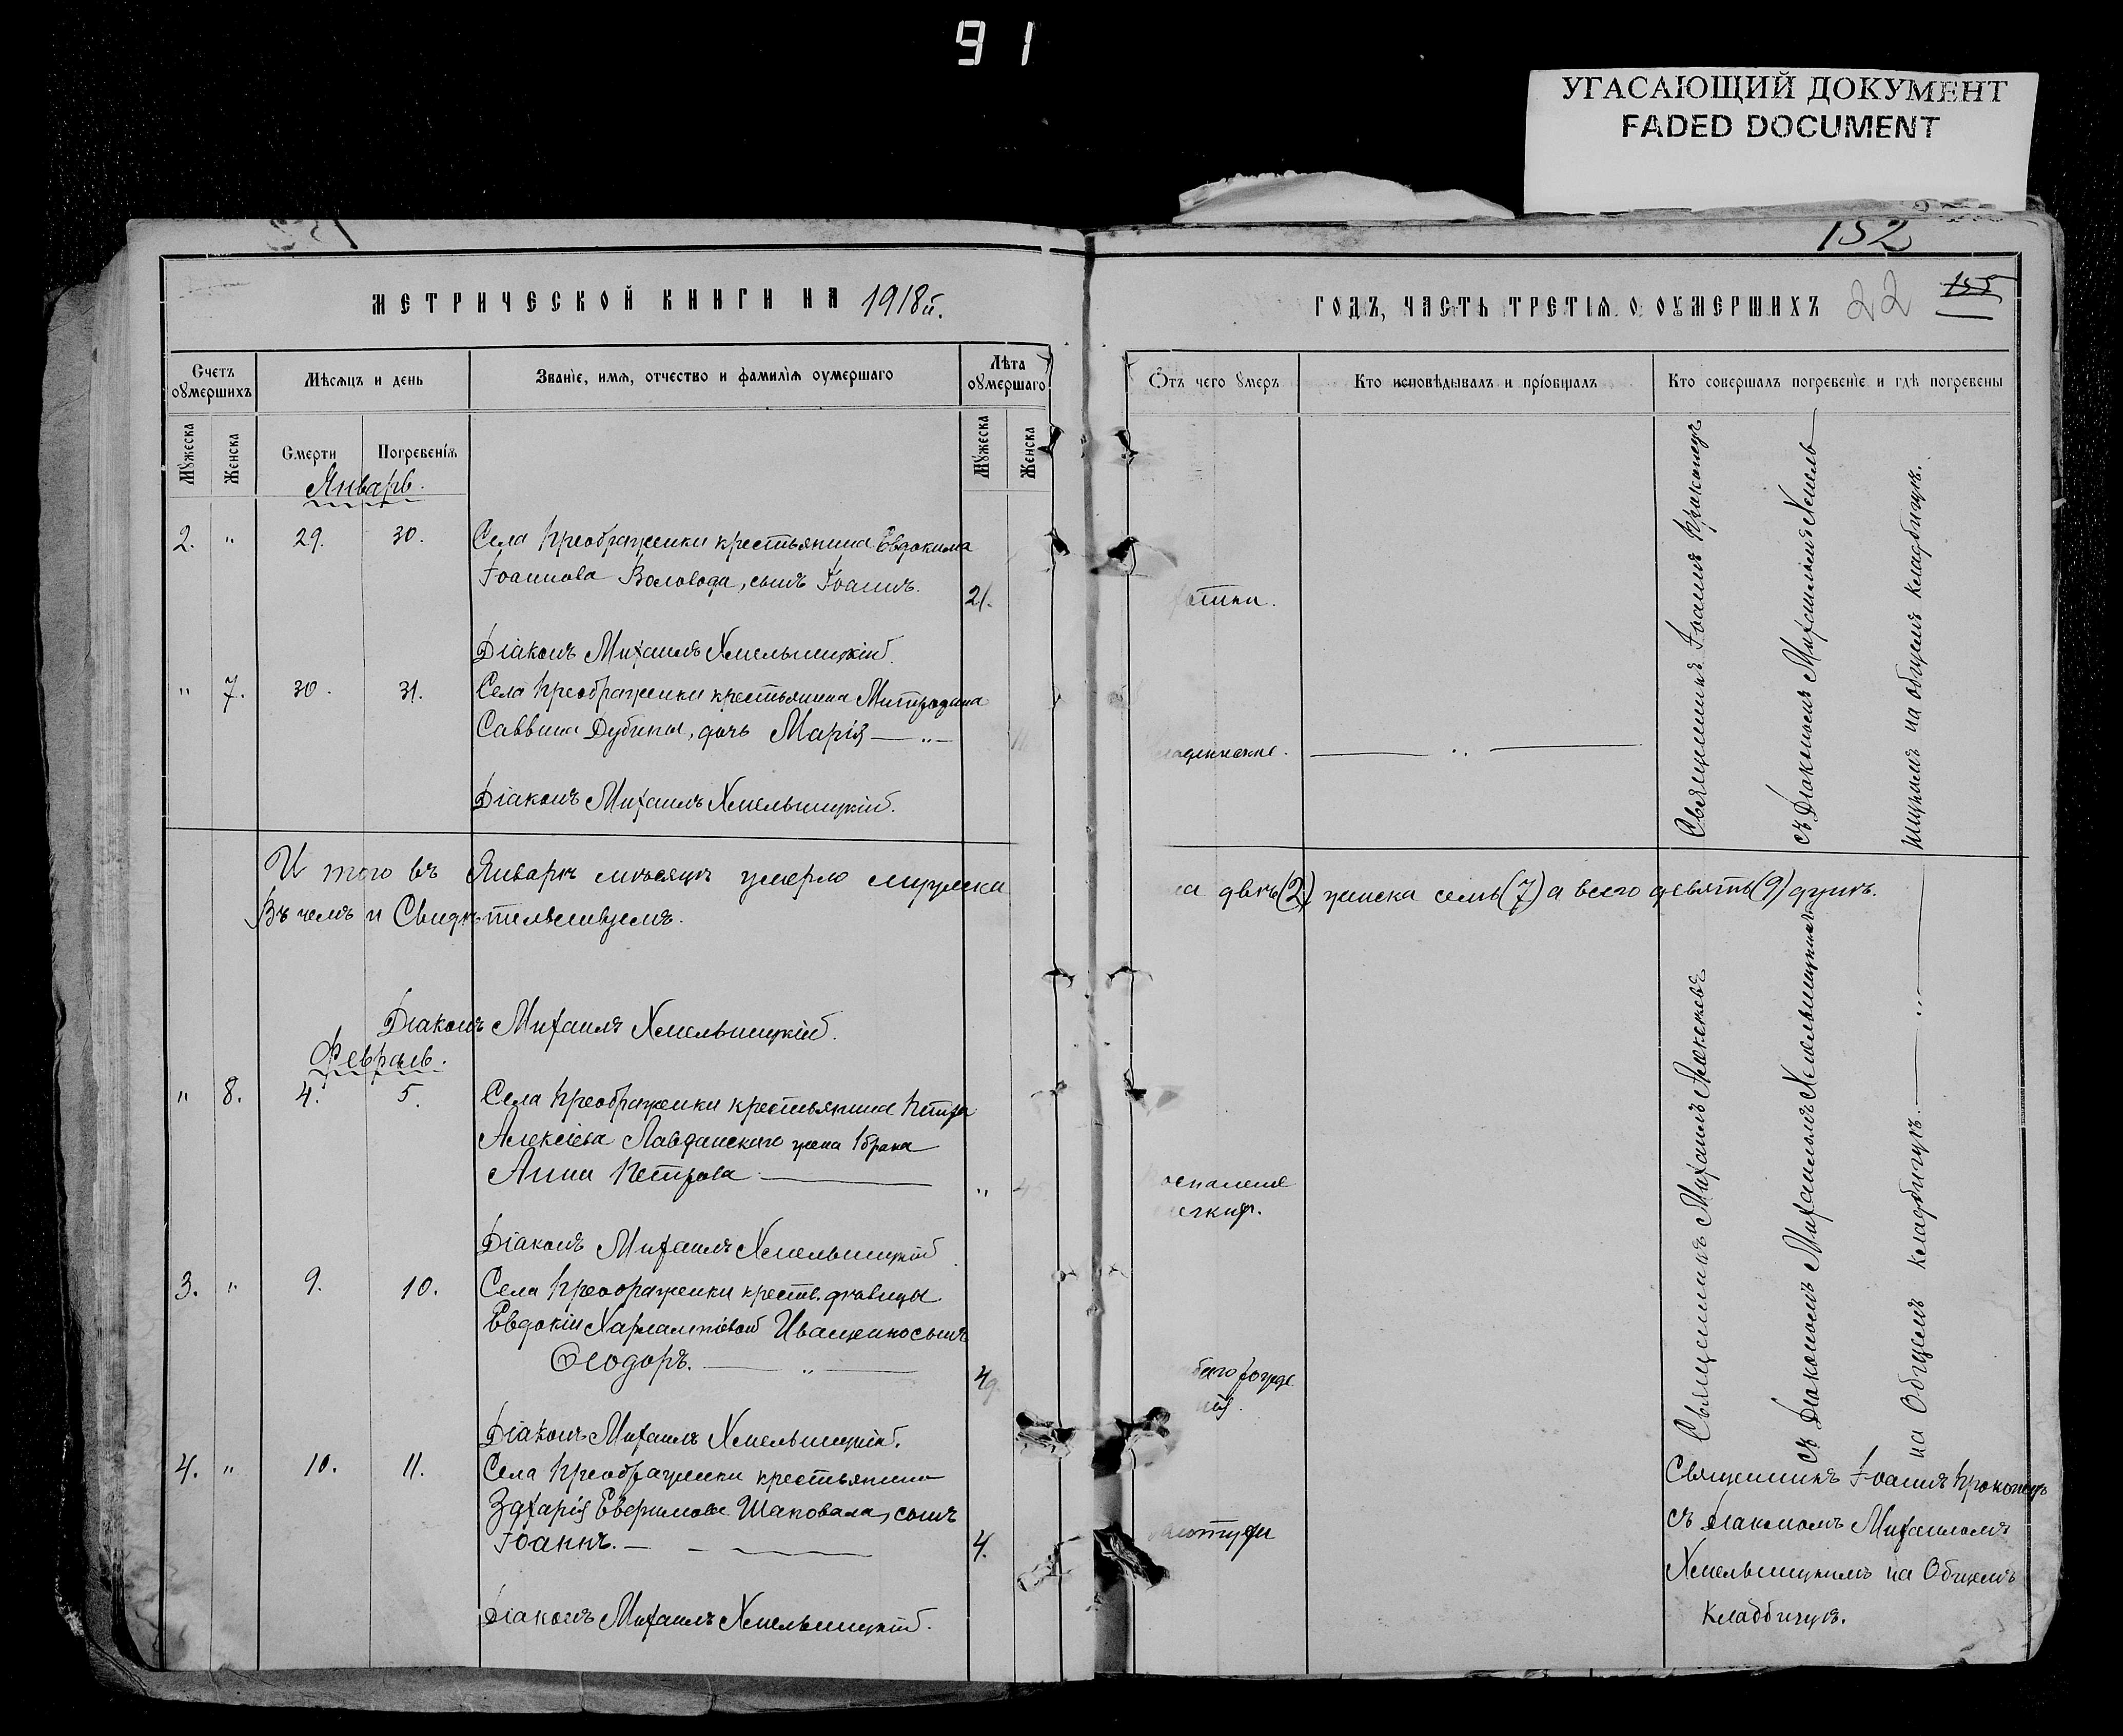 91
УГАСАЮЩИЙ ДОКУМЕНТ
FADED DOCUMENT
152
МЕТРИЧЕСКОЙ КНИГИ НА 1918й.
ГОДЪ, ЧАСТЬ ТРЕТІЯ О ОУМЕРШИХЪ 22 155
Счетъ оумершихъ
Мѣсяцъ и день
Званіе, имя, отчество и фамилія оумершаго
Лѣта оумершаго
Мужеска
Женска
Смерти
Погребенія
Мужеска
Женска
Отъ чего умеръ
Кто исповѣдывалъ и пріобщалъ
Кто совершалъ погребеніе и гдѣ погребены
Январь.
2. " 29. 30. Села Преображенки крестьянина Евдокима
Іоаннова Воловода, сынъ Іоаннъ. 21.
Діаконъ Михаилъ Хмельницкій.
" 7. 30. 31. Села Преображенки крестьянина Митрофана
Саввина Дубины, дочь Марія — " —
Діаконъ Михаилъ Хмельницкій.
Священникъ Іоаннъ Прокопецъ
съ Діакономъ Михаиломъ Хмель-
ницкимъ на общемъ кладбищѣ.
И того въ Январѣ мѣсяцѣ умерло мужеска
два (2) женска семь (7) а всего девять (9) душъ.
Въ чемъ и Свидѣтельствуемъ.
Діаконъ Михаилъ Хмельницкій.
Февраль.
" 8. 4. 5. Села Преображенки крестьянина Петра
Алексіева Лавданскаго жена 1 брака
Анна Петрова — "
Діаконъ Михаилъ Хмельницкій
3. " 9. 10. Села Преображенки крестьян. дѣвицы
Евдокіи Харлампіевой Иващенко сынъ
Ѳеодоръ. — " — 4д.
Діаконъ Михаилъ Хмельницкій.
Священникъ Михаилъ Алексѣевъ
съ Діакономъ Михаиломъ Хмельницкимъ
на Общемъ кладбищѣ. — " —
4. " 10. 11. Села Преображенки крестьянина
Захарія Евфимова Шаповала, сынъ
Іоаннъ. — 4.
Діаконъ Михаилъ Хмельницкій.
Священникъ Іоаннъ Прокопецъ
съ Діакономъ Михаиломъ
Хмельницкимъ на Общемъ
кладбищѣ.